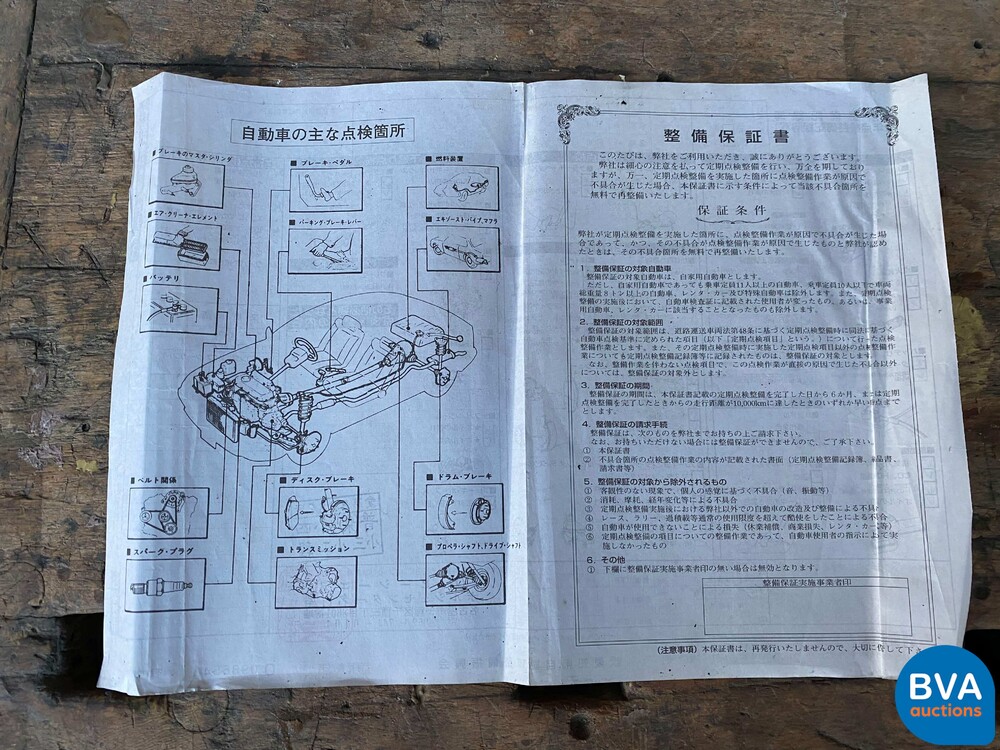 自動車の主な点検箇所
■ ブレーキのマスタ・シリンダ
■ ブレーキ・ペダル
■ 燃料装置
■ エア・クリーナ・エレメント
■ パーキング・ブレーキ・レバー
■ エキゾースト・パイプ、マフラ
■ バッテリ
■ ベルト関係
■ ディスク・ブレーキ
■ ドラム・ブレーキ
■ スパーク・プラグ
■ トランスミッション
■ プロペラ・シャフト、ドライブ・シャフト
整備保証書
このたびは、弊社をご利用いただき、誠にありがとうございます。
弊社は細心の注意を払って定期点検整備を行い、万全を期しており
ますが、万一、定期点検整備を実施した箇所に点検整備作業が原因で
不具合が生じた場合、本保証書に示す条件によって当該不具合箇所を
無料で再整備いたします。
保証条件
弊社が定期点検整備を実施した箇所に、点検整備作業が原因で不具合が生じた場
合であって、かつ、その不具合が点検整備作業で生じたものと弊社が認め
たときは、その不具合箇所を無料で再整備いたします。
1．整備保証の対象自動車
整備保証の対象自動車は、自家用自動車とします。
ただし、自家用自動車であっても乗車定員11人以上の自動車、乗車定員10人以下で車両
総重量8トン以上の自動車、レンタ・カー及び特殊自動車は除外します。また、定期点検
整備の実施後において、自動車検査証に記載された使用者が変ったもの、あるいは、事業
用自動車、レンタ・カーに該当することとなったものも除外します。
2．整備保証の対象範囲
整備保証の対象範囲は、道路運送車両法第48条に基づく定期点検整備時に同法に基づく
自動車点検基準に定められた項目（以下「定期点検項目」という。）について行った点検
整備作業とします。また、その定期点検整備時に実施した定期点検項目以外の点検整備作
業についても定期点検整備記録簿等に記録されたものは、整備保証の対象とします。
なお、整備作業を伴わない点検項目で、この点検作業が直接の原因で生じた不具合以外
については、整備保証の対象外とします。
3．整備保証の期間
整備保証の期間は、本保証書記載の定期点検整備を完了した日から6か月、または定期
点検整備を完了したときからの走行距離が10,000kmに達したときのいずれか早い時点まで
とします。
4．整備保証の請求手続
整備保証は、次のものを弊社までお持ちの上ご請求下さい。
なお、お持ちいただけない場合には整備保証ができませんので、ご了承下さい。
① 本保証書
② 不具合箇所の点検整備作業の内容が記載された書面（定期点検整備記録簿、納品書、
請求書等）
5．整備保証の対象から除外されるもの
① 客観性のない現象で、個人の感覚に基づく不具合（音、振動等）
② 消耗、摩耗、経年変化等による不具合
③ 定期点検整備実施後における弊社以外での自動車の改造及び整備による不具合
④ レース、ラリー、過積載等通常の使用限度を超えて酷使をしたことによる不具合
⑤ 自動車が使用できないことによる損失（休業補償、商業損失、レンタ・カー等）
⑥ 定期点検整備の項目についての整備作業であって、自動車使用者の指示によって実
施しなかったもの
6．その他
① 下欄に整備保証実施事業者印の無い場合は無効となります。
整備保証実施事業者印
（注意事項）本保証書は、再発行いたしませんので、大切に保管して下さ
BVA
auctions